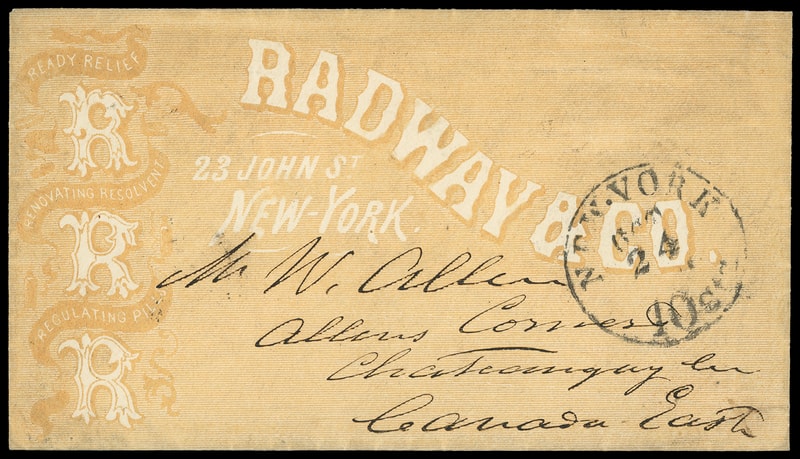 READY RELIEF
R
RENOVATING RESOLVENT
R
REGULATING PILLS
R
RADWAY & CO.
23 JOHN ST
NEW-YORK.
NEW-YORK
OCT
24
10
Mr W. Allen
Allens Corners
Chateauguay
Canada East